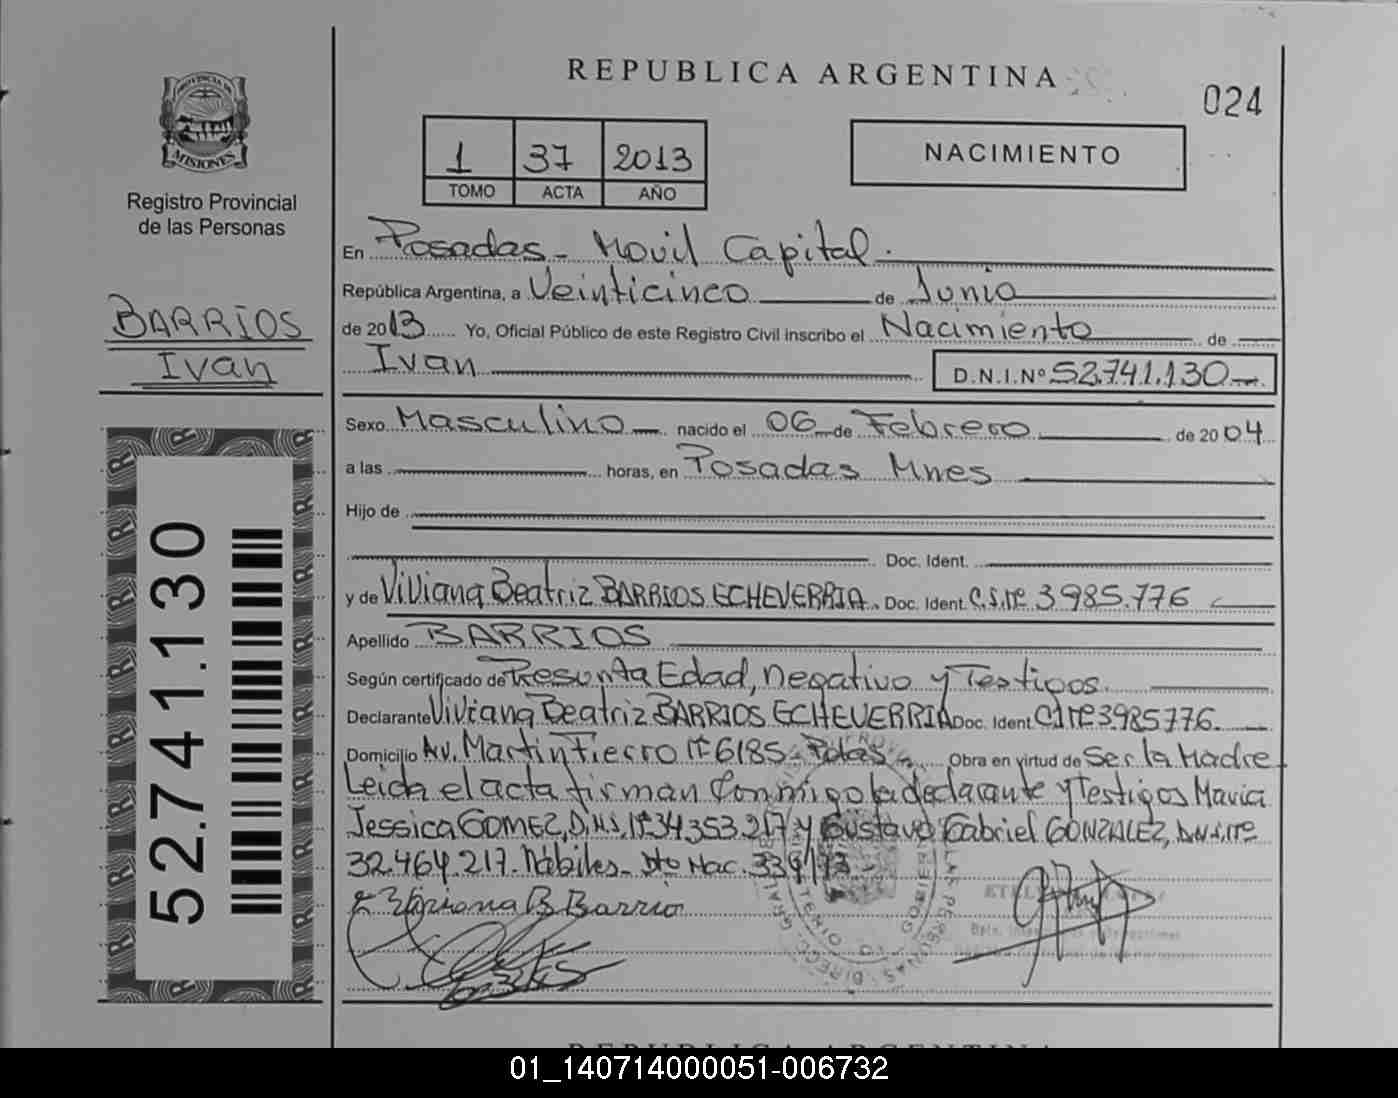 REPUBLICA ARGENTINA
024
PROVINCIA DE
MISIONES
Registro Provincial
de las Personas
1 37 2013
TOMO ACTA AÑO
NACIMIENTO
BARRIOS
Ivan
52.741.130
En Posadas - Movil Capital.
República Argentina, a Veinticinco de Junio
de 2013 Yo, Oficial Público de este Registro Civil inscribo el Nacimiento de
Ivan D.N.I.Nº 52.741.130
Sexo Masculino nacido el 06 de Febrero de 2004
a las horas, en Posadas Mnes
Hijo de
Doc. Ident.
y de Viviana Beatriz BARRIOS ECHEVERRIA. Doc. Ident. C.I.Nº 3985.776
Apellido BARRIOS
Según certificado de Presunta Edad, Negativo y Testigos.
Declarante Viviana Beatriz BARRIOS ECHEVERRIA Doc. Ident. C.I Nº 3985776.
Domicilio Av. Martin Fierro Nº 6185 - Pdas Obra en virtud de Ser la Madre
Leida el acta firman Conmigo la declarante y Testigos Maria
Jessica GOMEZ, D.N.I. Nº 34.353.217 y Gustavo Gabriel GONZALEZ, D.N.I. Nº
32.464.217. Hábiles - Dto Nac. 339/13.
Viviana B Barrio
REPUBLICA ARGENTINA
01_140714000051-006732